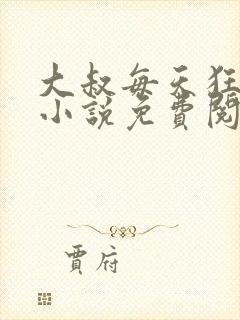 大叔每天狂
小説免費閱
賈府